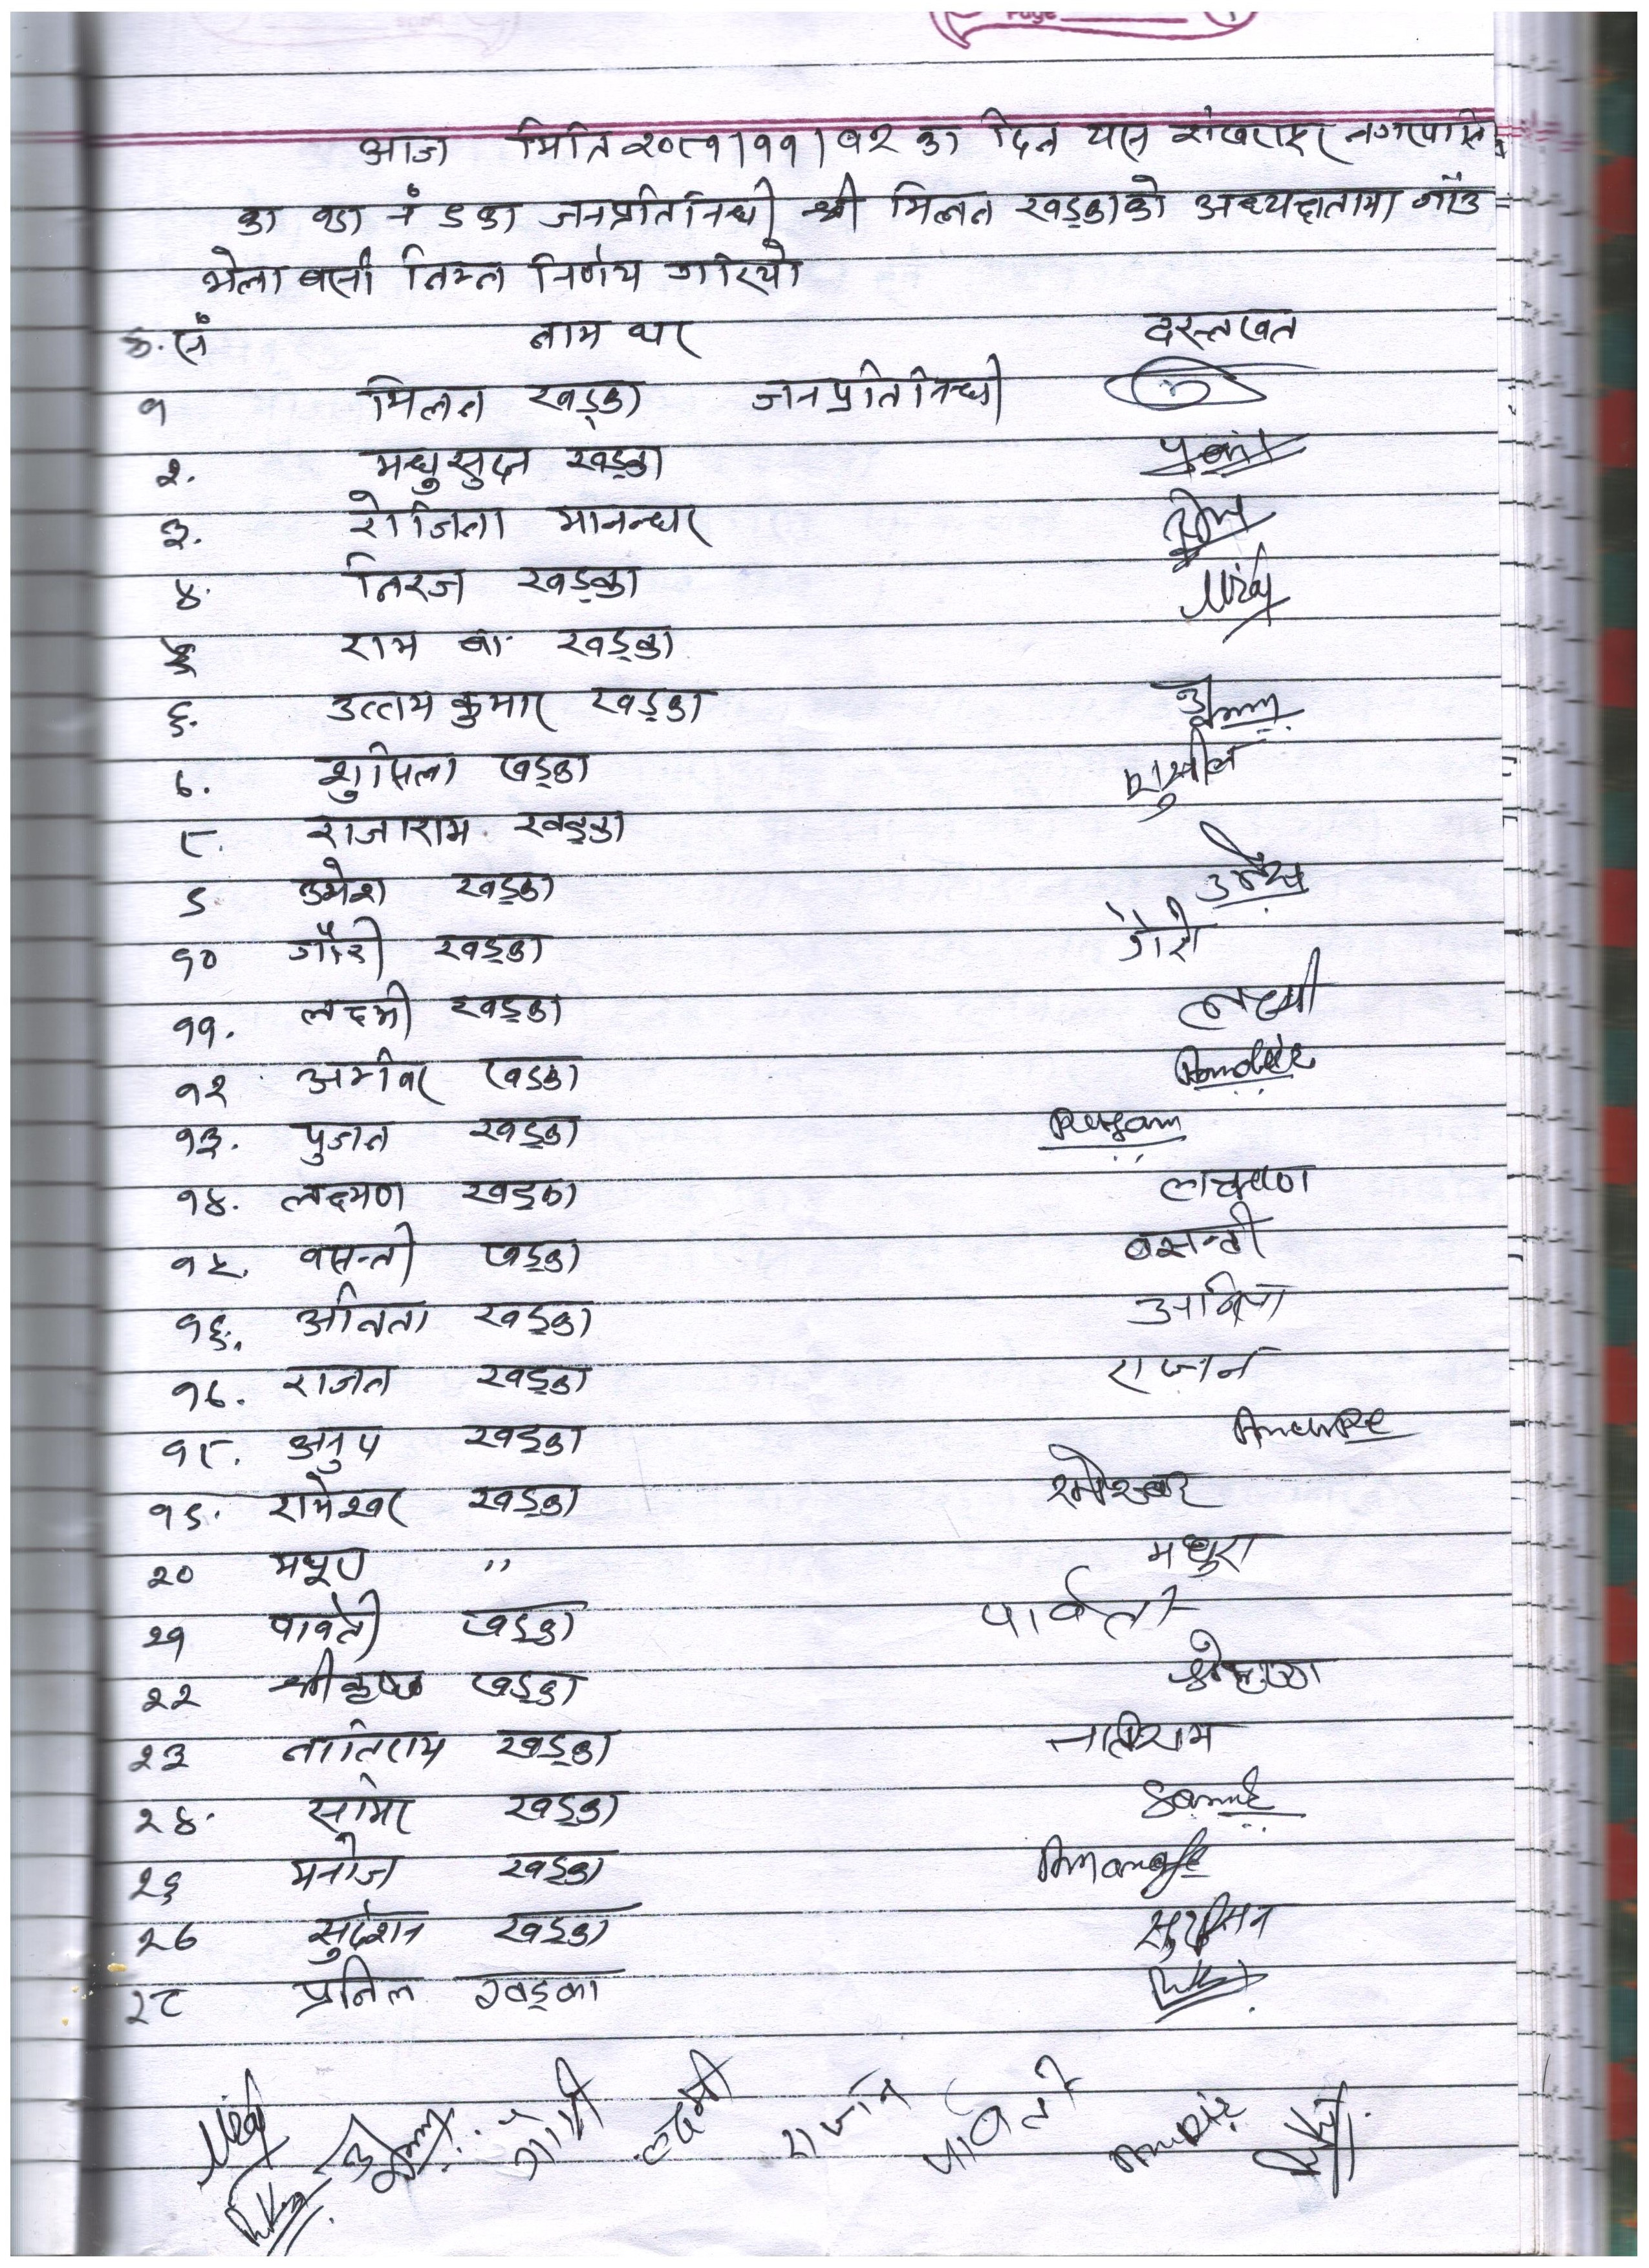 Page
आज मिति २०८१।११।०२ का दिन यस शंखरापुर नगरपालिका
का वडा नं ९ का जनप्रतिनिधी श्री मिलन खड्काको अध्यक्षतामा गाँउ
भेला बसी निम्न निर्णय गरियो
क्र.सं नाम थर दस्तखत
१ मिलन खड्का जनप्रतिनिधी
२. मधुसुदन खड्का
३. रोजिना मानन्धर
४. निरज खड्का Niraj
५ राम ब. खड्का
६. उत्तम कुमार खड्का
७. शुसिला खड्का सुशीला
८. राजाराम खड्का
९ उमेश खड्का उमेश
१० गौरी खड्का गौरी
११. लक्ष्मी खड्का लक्ष्मी
१२ अमीर खड्का
१३. पुजन खड्का Pujan
१४. लक्ष्मण खड्का लक्ष्मण
१५. बसन्ती खड्का बसन्ती
१६. अनिता खड्का अनिता
१७. राजन खड्का राजन
१८. अनुप खड्का
१९. रामेश्वर खड्का रामेश्वर
२० मथुरा " मथुरा
२१ पार्वती खड्का पार्वती
२२ श्रीकृष्ण खड्का श्रीकृष्ण
२३ नातिराम खड्का नातीराम
२४. सामिर खड्का
२६ मनोज खड्का
२७ सुदर्शन खड्का सुदर्शन
२८ प्रनिल खड्का
Niraj गौरी लक्ष्मी राजन पार्वती